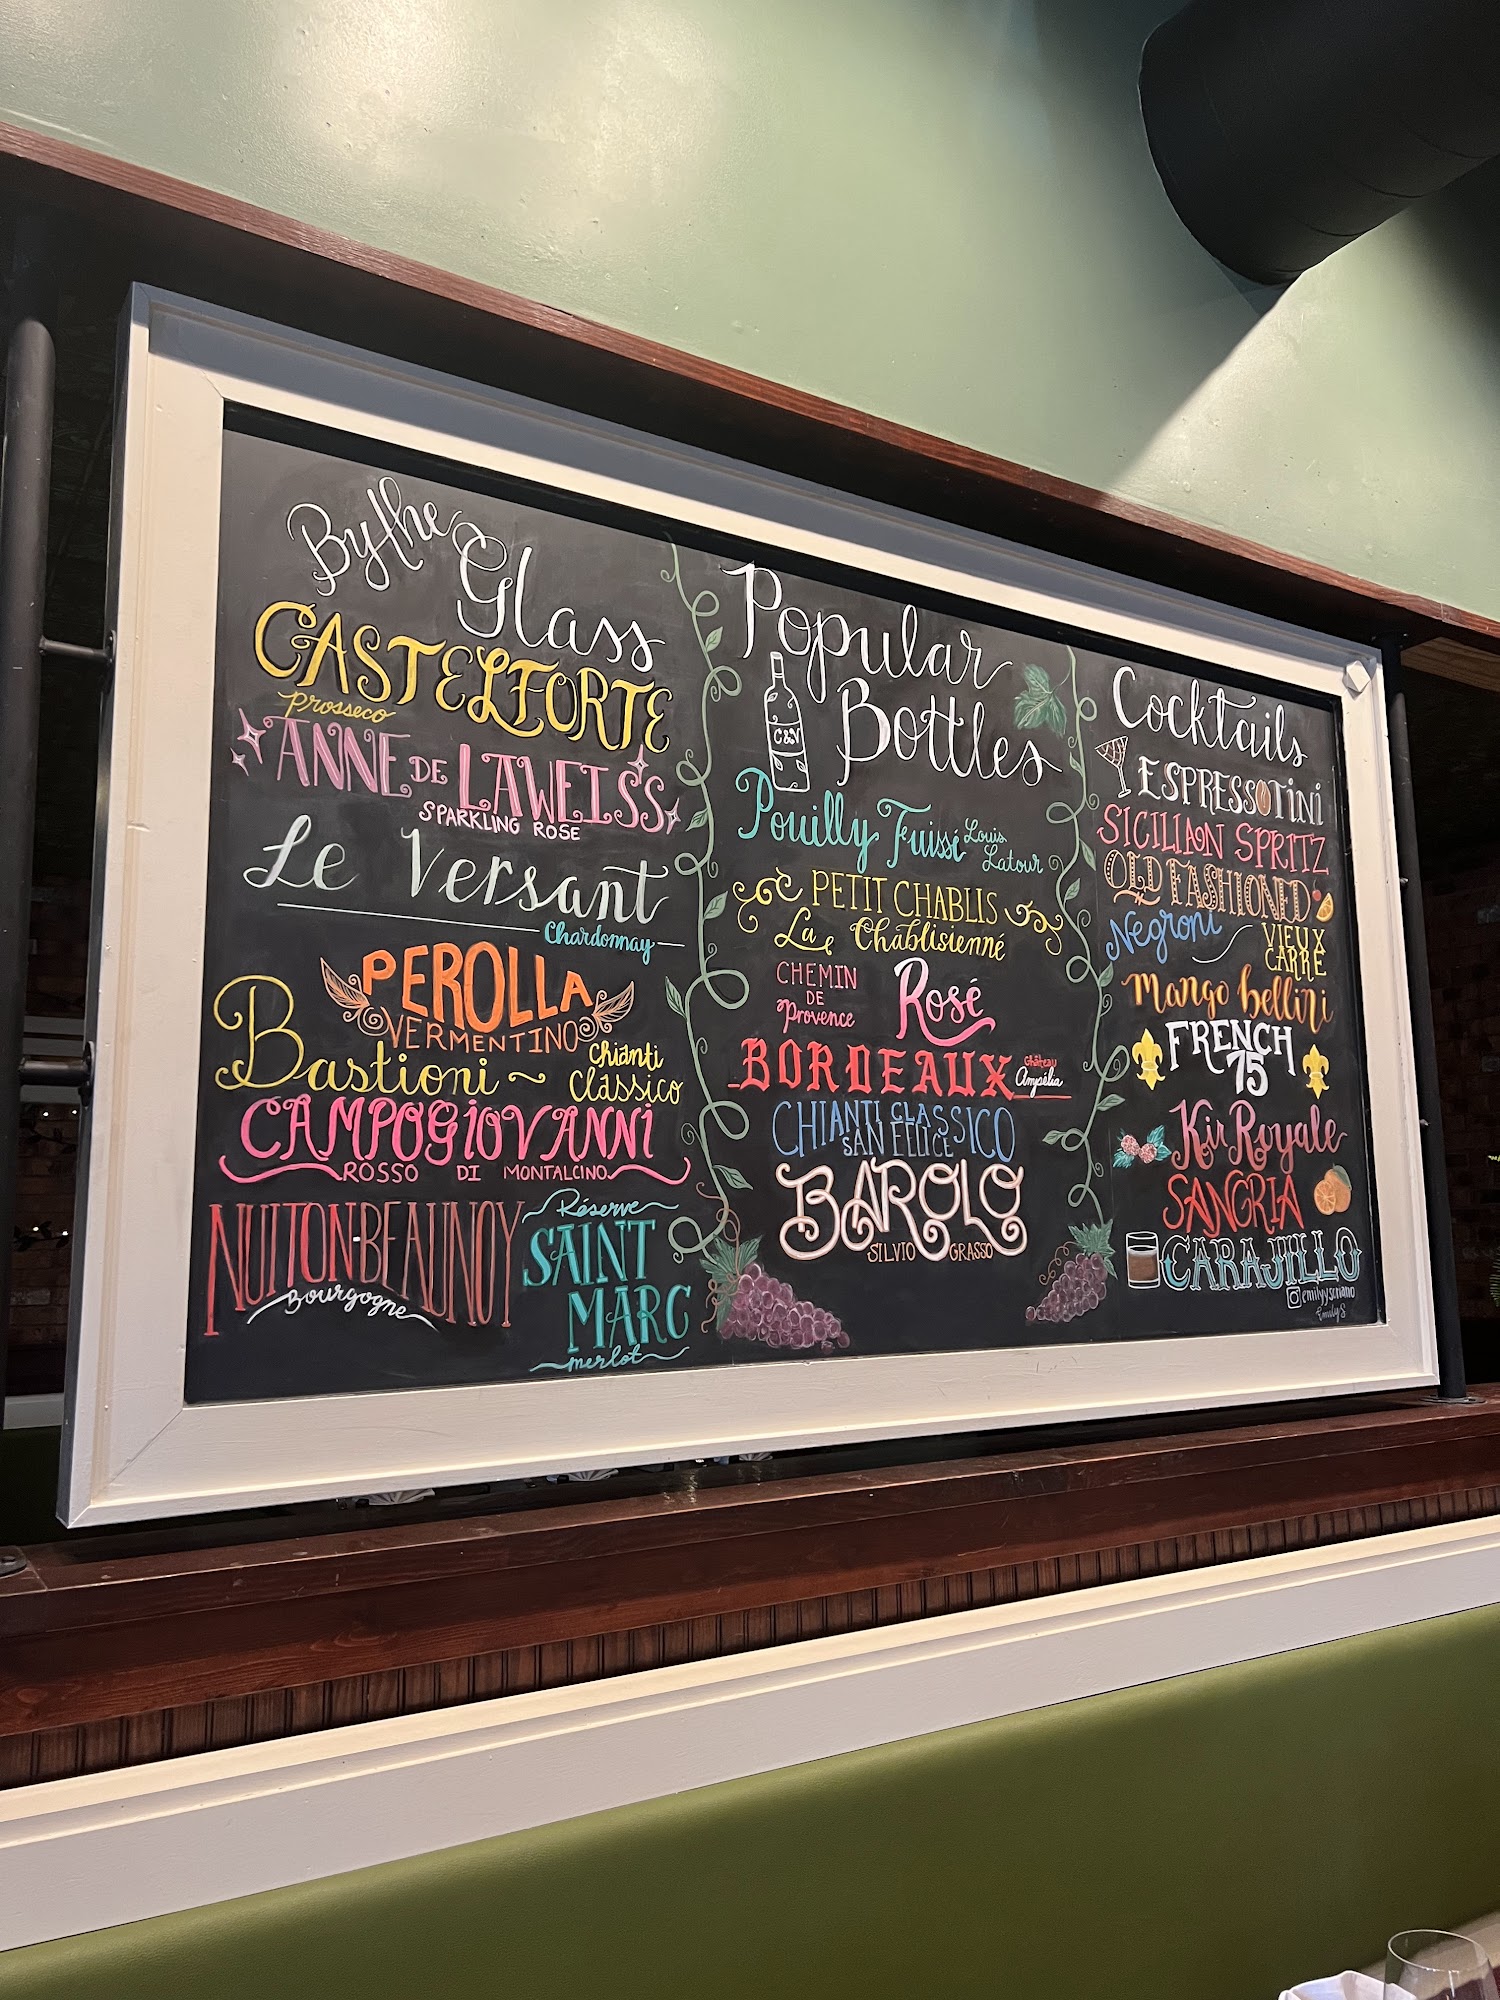 By the
Glass
CASTELFORTE
Prosseco
ANNE DE LAWEISS
SPARKLING ROSE
Le Versant
Chardonnay
PEROLLA
VERMENTINO
Bastioni ~ Chianti
Classico
CAMPOGIOVANNI
ROSSO DI MONTALCINO
NUITON BEAUNOY
Bourgogne
Réserve
SAINT
MARC
merlot
Popular
Bottles
C&V
Pouilly Fuissé Louis
Latour
PETIT CHABLIS
La Chablisienné
CHEMIN
DE
Provence
Rosé
BORDEAUX Château
Ampélia
CHIANTI CLASSICO
SAN FELICE
BAROLO
SILVIO GRASSO
Cocktails
ESPRESSOTINI
SICILIAN SPRITZ
OLD FASHIONED
Negroni
VIEUX
CARRE
Mango bellini
FRENCH
75
Kir Royale
SANGRIA
CARAJILLO
@emilyyscriano
Emily S